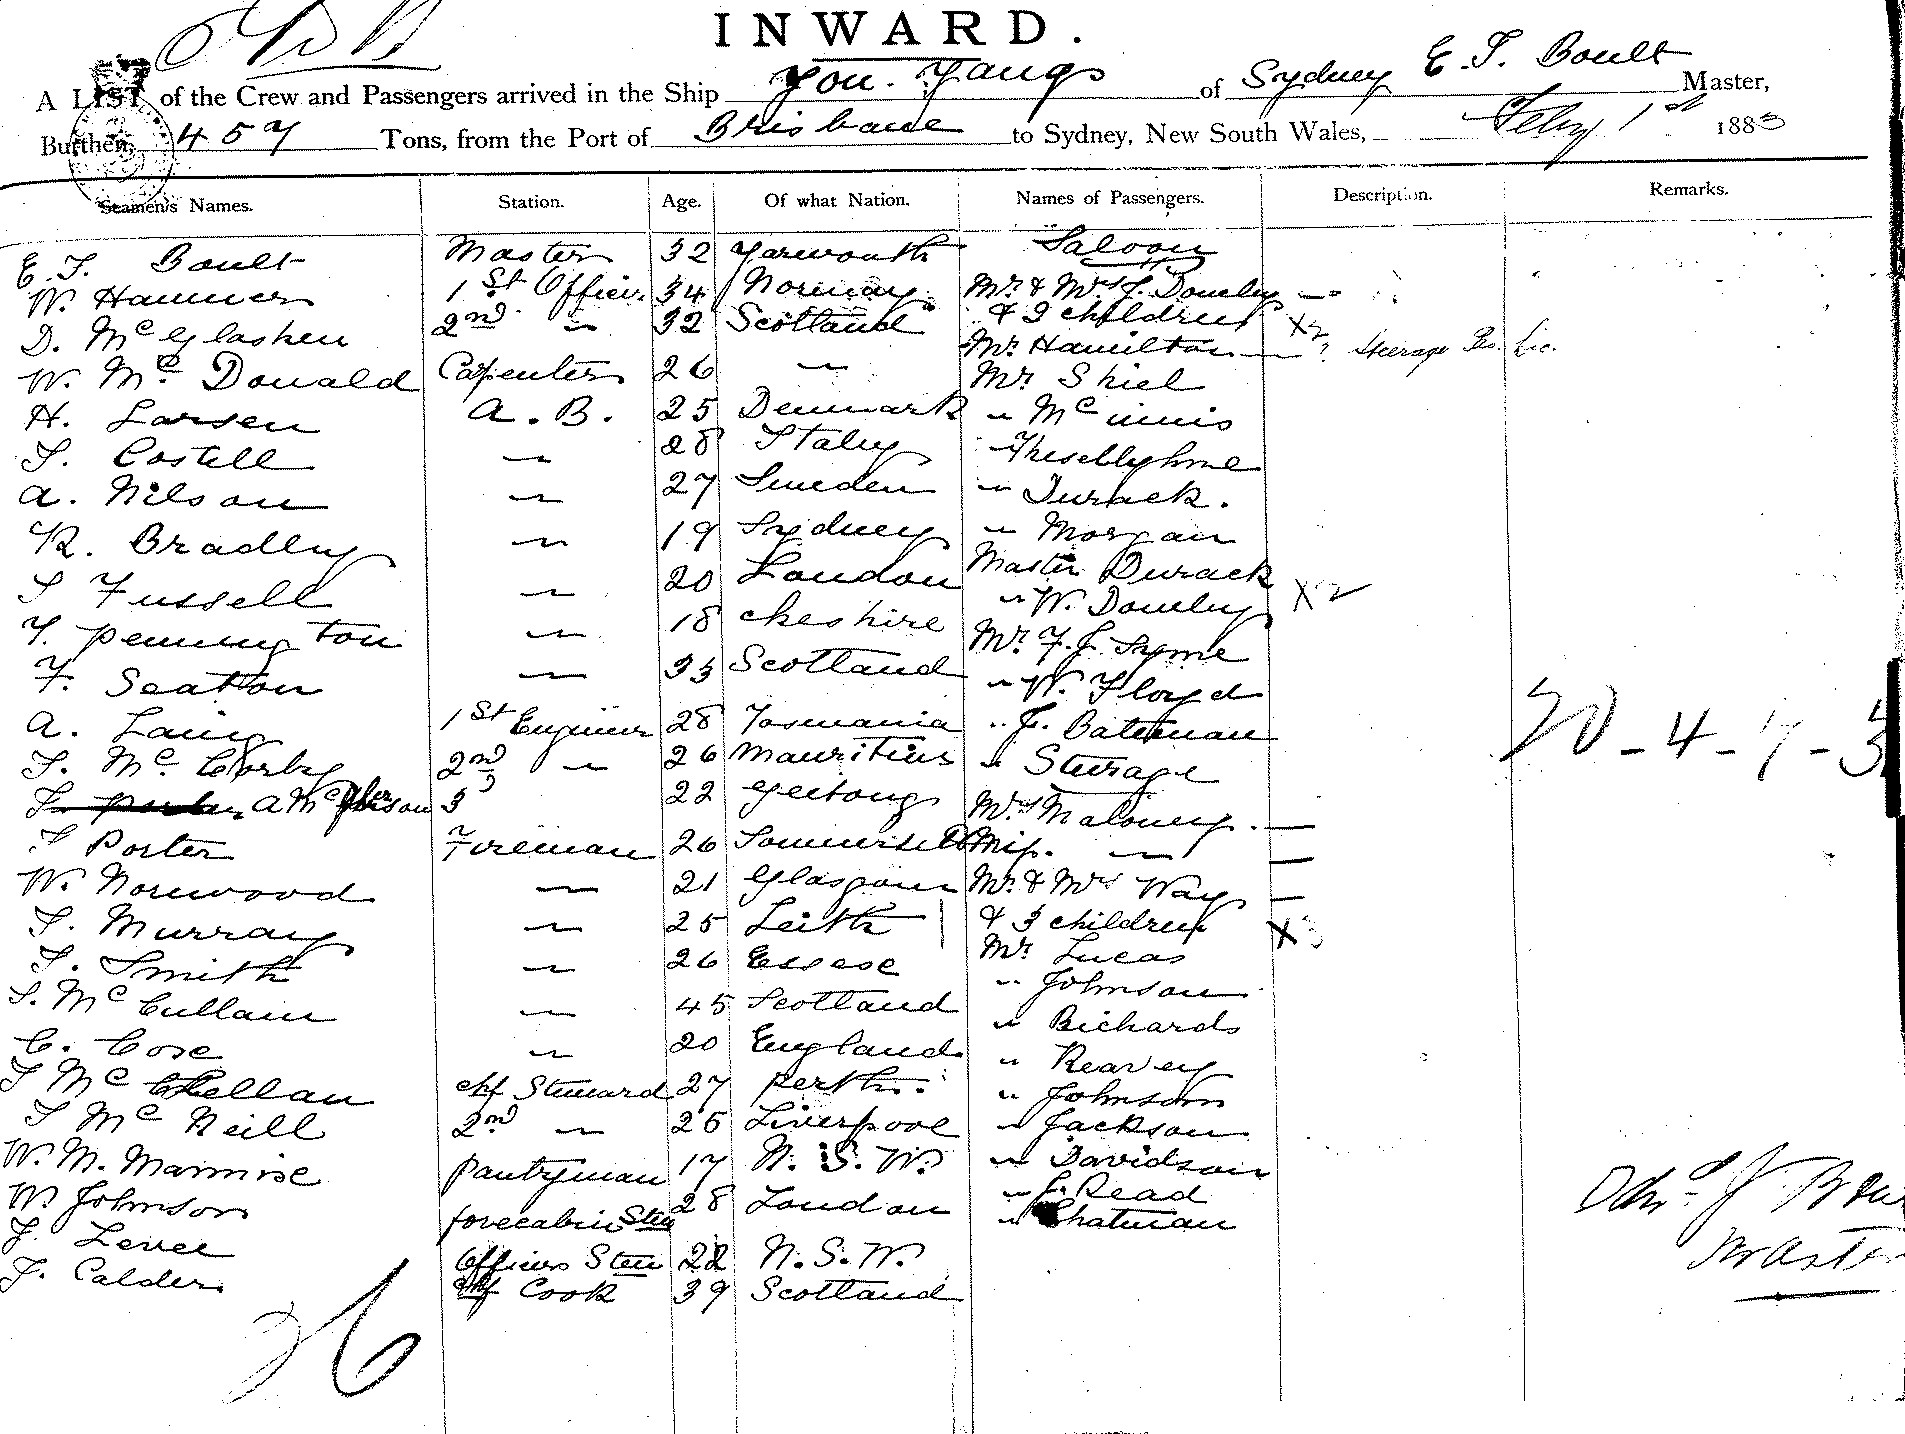 INWARD.
A LIST of the Crew and Passengers arrived in the Ship You. Yangs of Sydney E. T. Boult Master,
Burthen, 457 Tons, from the Port of Brisbane to Sydney, New South Wales, Feby 1st 1883
Seamen's Names. Station. Age. Of what Nation. Names of Passengers. Description. Remarks.
E. T. Boult Master 32 Yarmouth Saloon
W. Hammer 1st Officer 34 Norway Mr & Mrs J. Donely —
D. McGlashen 2nd " 32 Scotland & 3 children X2
W. McDonald Carpenter 26 " Mr Hamilton — Steerage
H. Larsen A. B. 25 Denmark Mr Shiel
T. Costell " 28 Italy " McInnis
A. Nilson " 27 Sweden
R. Bradley " 19 Sydney " Durack.
T Fussell " 20 London " Morgan
F. Pennington " 18 Cheshire Master Durack
F. Seatton " 33 Scotland " W. Donely X2
A. Laing 1st Engineer 28 Tasmania Mr F. J. Syme
T. McCorby 2nd " 26 Mauritius " W. Floyd
A McPherson 3 22 Geelong " J. Bateman
T Porter Fireman 26 Sommersett Steerage
W. Norwood " 21 Glasgow Mrs Maloney. —
T. Murray " 25 Leith Miss. " —
T. Smith " 26 Essex Mr & Mrs Way —
T. McCullam " 45 Scotland & 3 children X3
C. Cose " 20 England Mr Lucas
T McLellan chf Steward 27 Perth. " Johnson
T McNeill 2nd " 25 Liverpool " Richards
W. M. Manmise Pantryman 17 N. S. W. " Rearvey
W. Johnson forecabin Stew 28 London " Johnson
J. Level Officers Stew 22 N. S. W. " Jackson
J. Calder chf Cook 39 Scotland " Davidson
" J. Read
" Chatman
26
20-4-7-3
Master